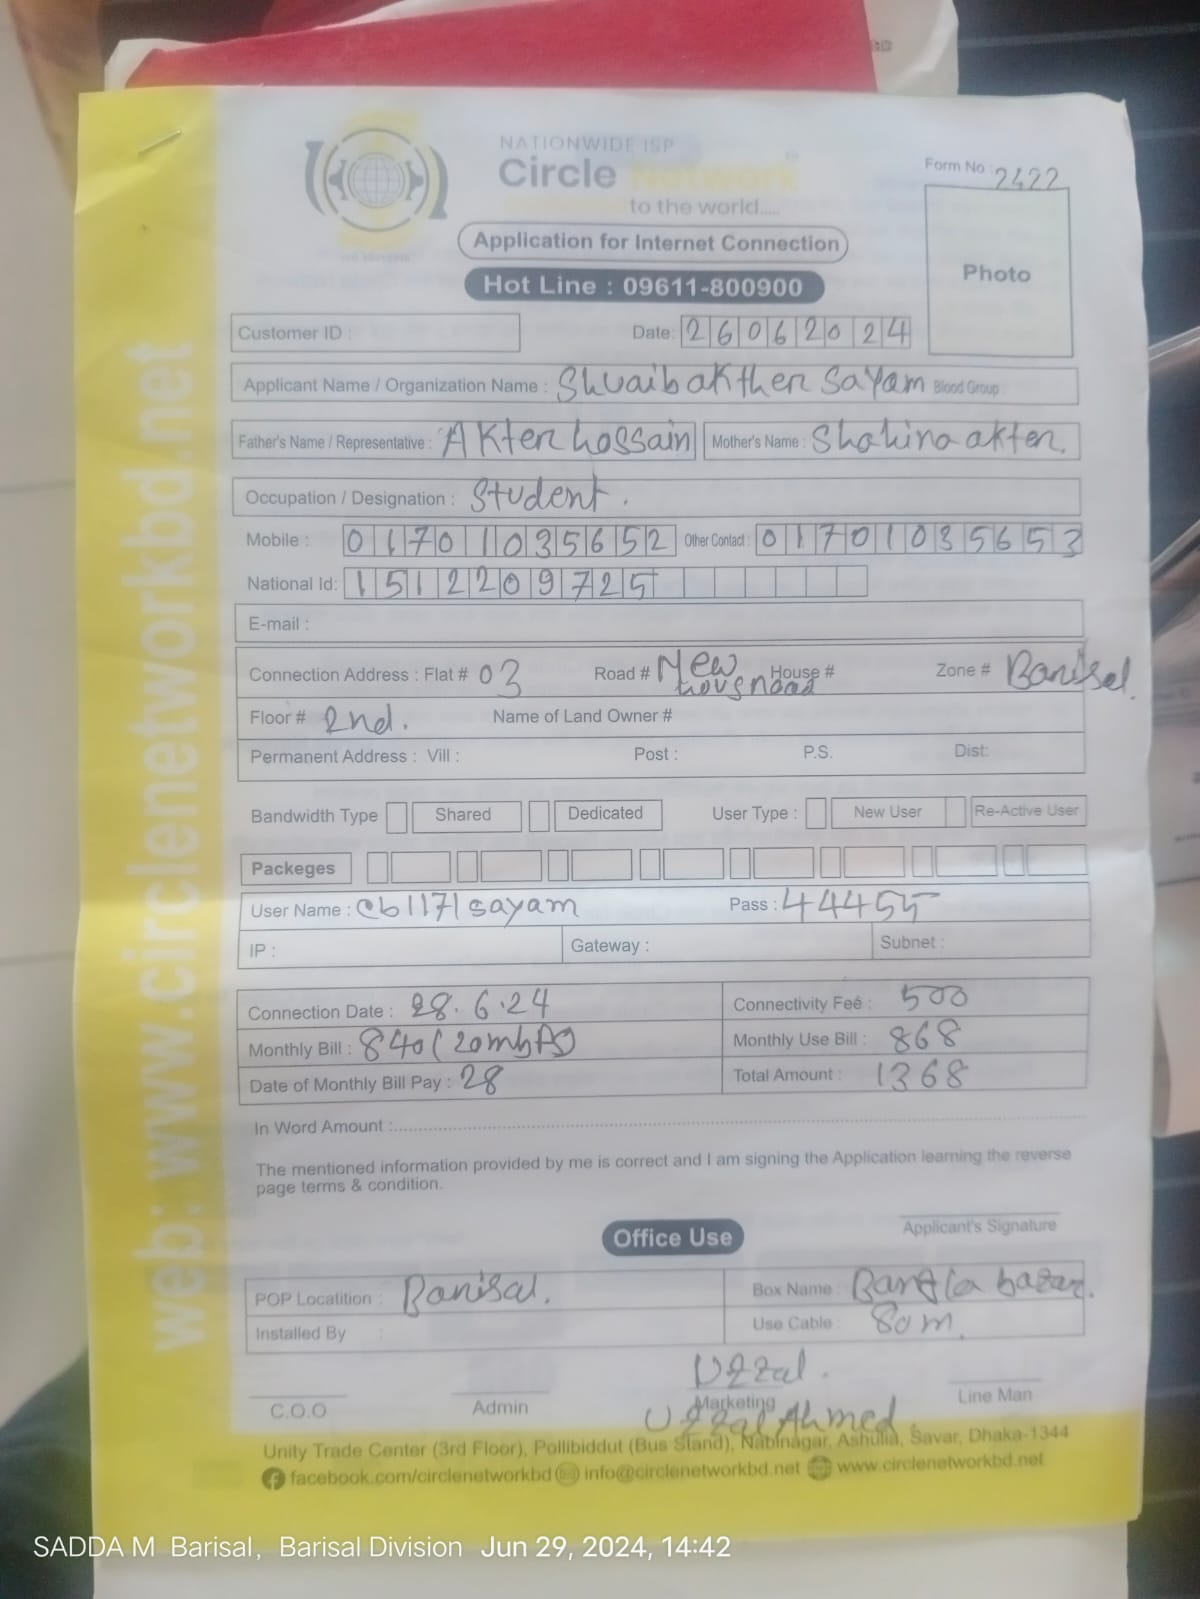 NATIONWIDE ISP
Circle Network
to the world....
Form No : 2422
Application for Internet Connection
Hot Line : 09611-800900
Photo
Customer ID :
Date: 26062024
Applicant Name / Organization Name : Shuaib akther Sayam Blood Group
Father's Name / Representative : Akter hossain Mother's Name : Shahina akter.
Occupation / Designation : Student.
Mobile : 01701035652 Other Contact : 01701035653
National Id: 1512209725
E-mail :
Connection Address : Flat # 03 Road # New House # Zone # Barisal.
Floor # 2nd. Name of Land Owner #
Permanent Address : Vill : Post : P.S. Dist:
Bandwidth Type Shared Dedicated User Type : New User Re-Active User
Packeges
User Name : cb1171sayam Pass : 44455
IP : Gateway : Subnet :
Connection Date : 28.6.24 Connectivity Feé : 500
Monthly Bill : 840 (20mbps) Monthly Use Bill : 868
Date of Monthly Bill Pay : 28 Total Amount : 1368
In Word Amount :
The mentioned information provided by me is correct and I am signing the Application learning the reverse
page terms & condition.
Applicant's Signature
Office Use
POP Locatition : Barisal. Box Name : Bangla bazar.
Installed By : Use Cable : 80m.
Uzzal.
C.O.O Admin Marketing Line Man
Uzzal Ahmed
Unity Trade Center (3rd Floor), Pollibiddut (Bus Stand), Nabinagar, Ashulia, Savar, Dhaka-1344
facebook.com/circlenetworkbd info@circlenetworkbd.net www.circlenetworkbd.net
web: www.circlenetworkbd.net
SADDA M Barisal, Barisal Division Jun 29, 2024, 14:42